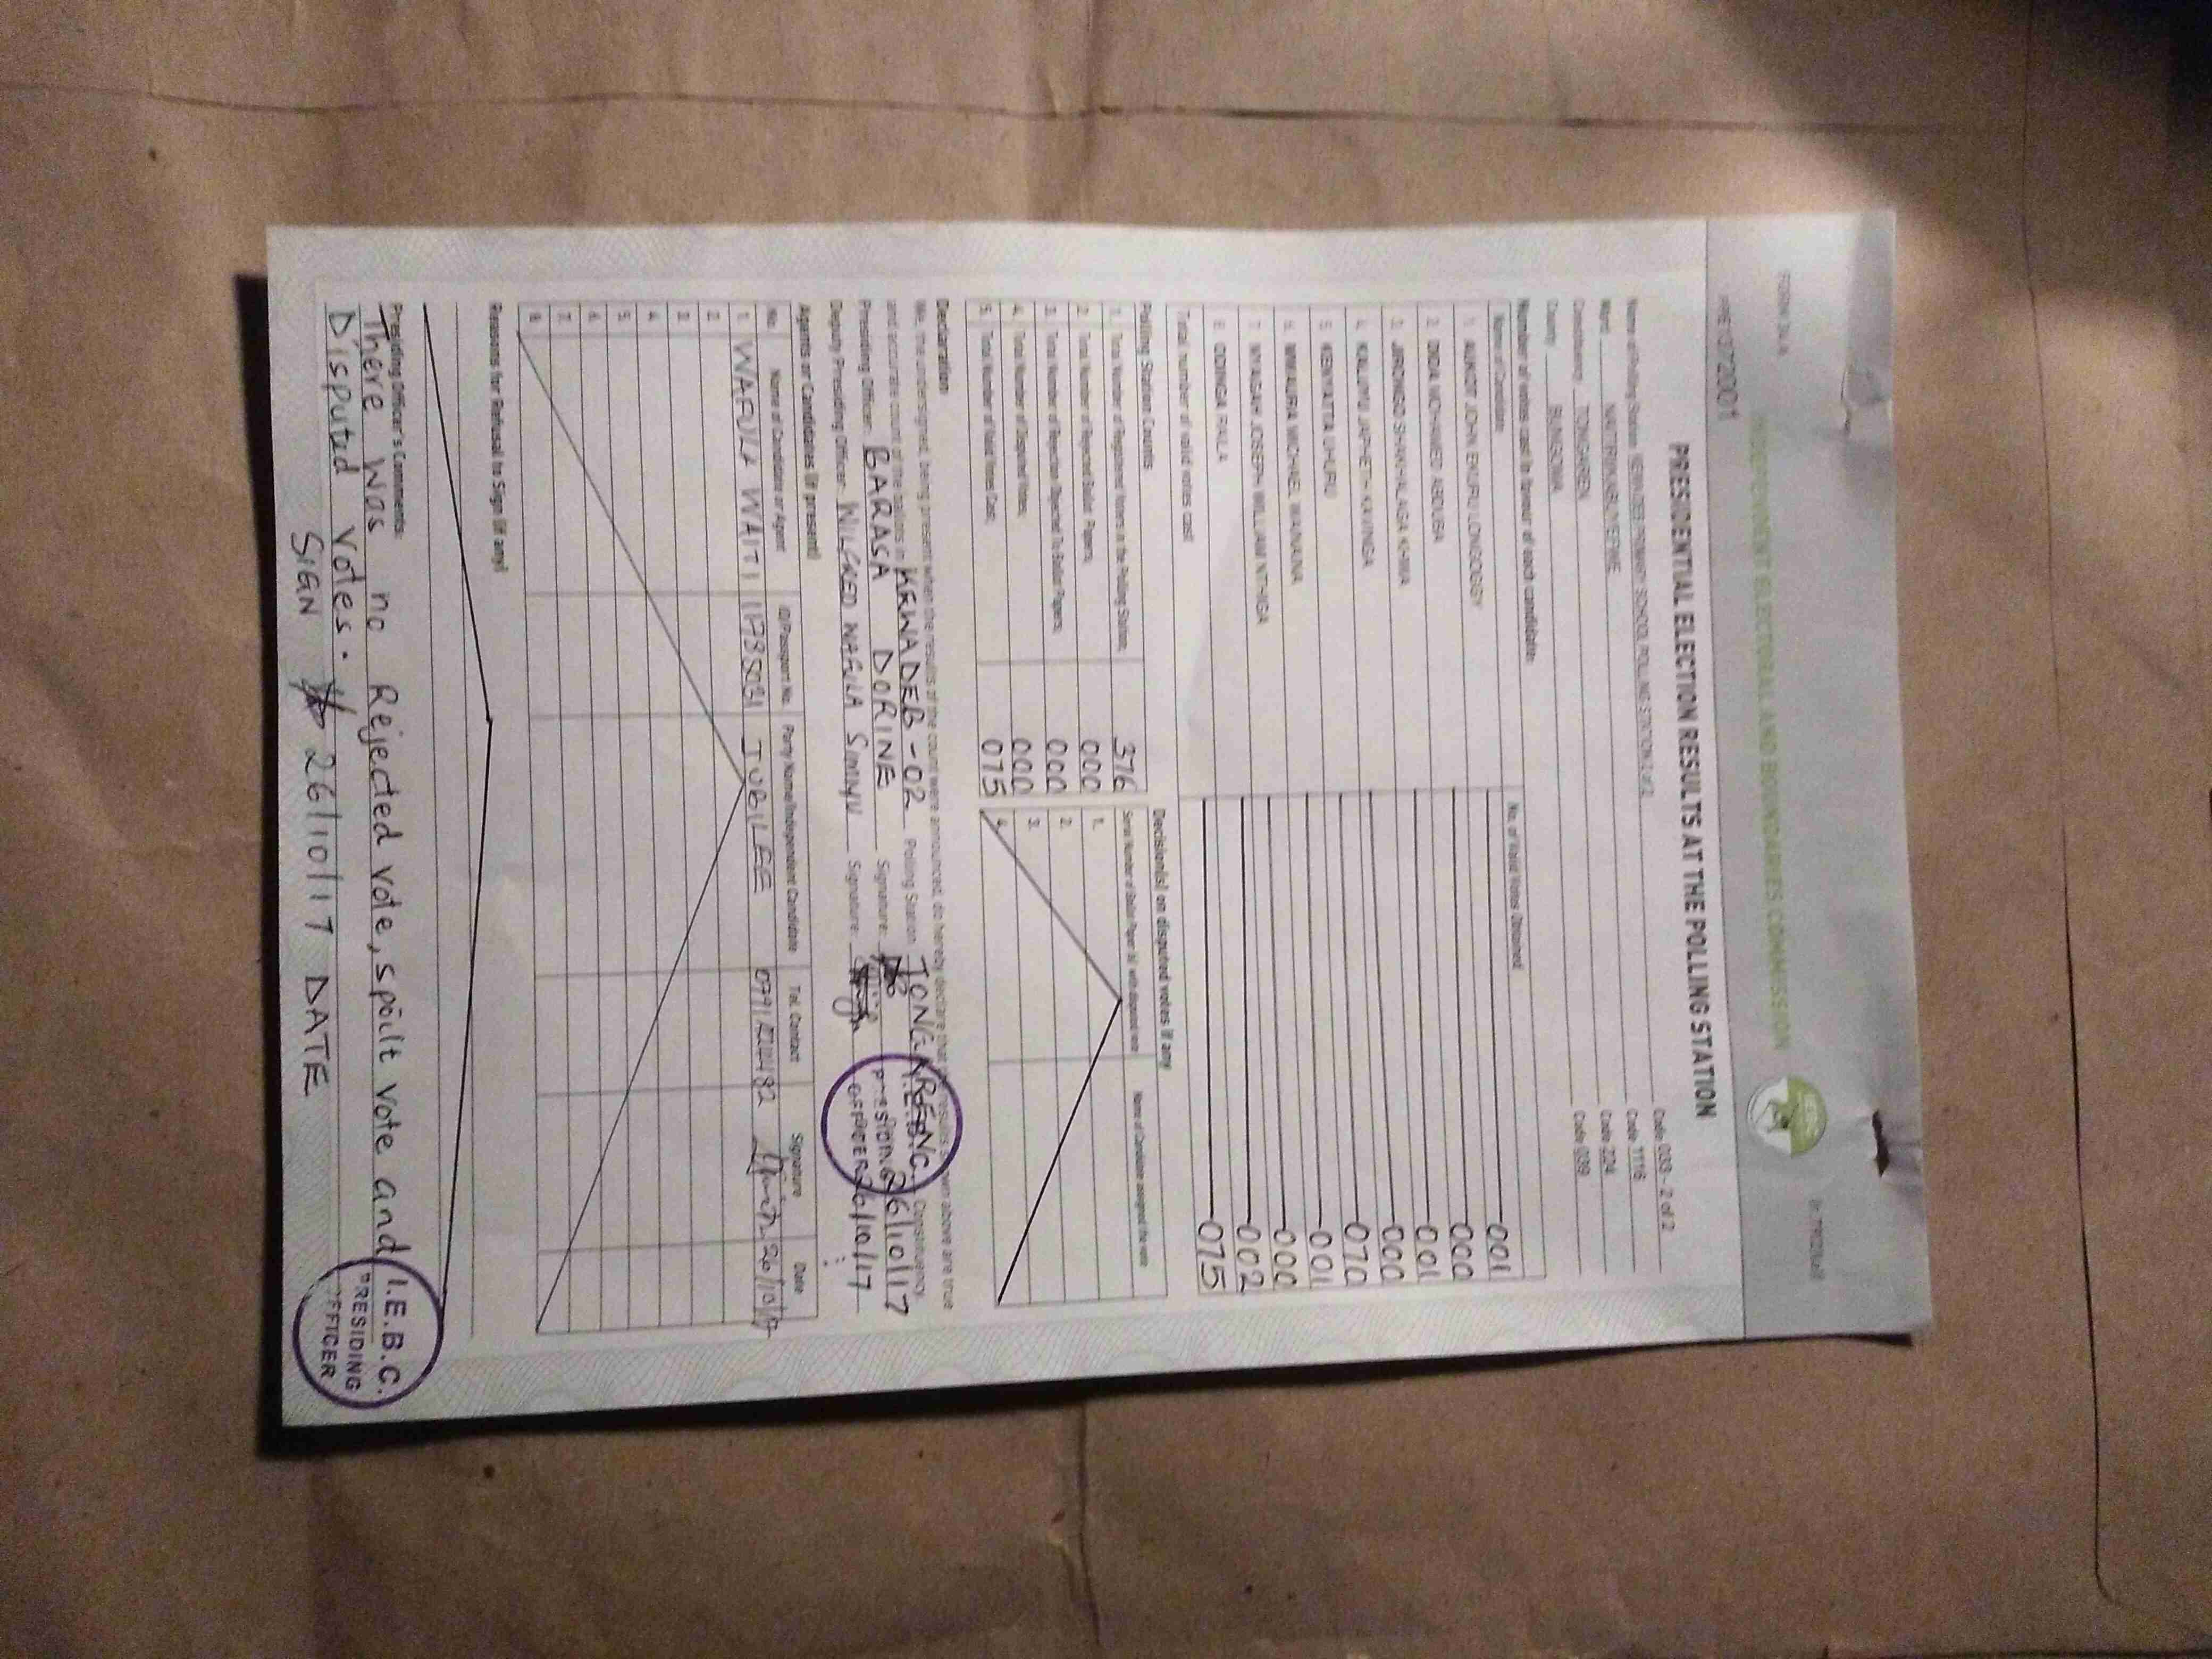 FORM 34 A
INDEPENDENT ELECTORAL AND BOUNDARIES COMMISSION
PRE1372001
PRESIDENTIAL ELECTION RESULTS AT THE POLLING STATION
Name of Polling Station KEWADEB PRIMARY SCHOOL POLLING STATION 2 of 2 Code 033 - 2 of 2
Ward NAITIRI/KABUYEFWE Code 1116
Constituency TONGAREN Code 224
County BUNGOMA Code 039
Number of votes cast in favour of each candidate:
Name of Candidate No. of Valid Votes Obtained
1. AUKOT JOHN EKURU LONGOGGY 001
2. DIDA MOHAMED ABDUBA 000
3. JIRONGO SHAKHALAGA KHWA 001
4. KALUYU JAPHETH KAVINGA 000
5. KENYATTA UHURU 070
6. MWAURA MICHAEL WAINAINA 001
7. NYAGAH JOSEPH WILLIAM NTHIGA 000
8. ODINGA RAILA 002
Total number of valid votes cast 075
Polling Station Counts
1. Total Number of Registered Voters in the Polling Station; 376
2. Total Number of Rejected Ballot Papers; 000
3. Total Number of Rejection Objected To Ballot Papers; 000
4. Total Number of Disputed Votes; 000
5. Total Number of Valid Votes Cast; 075
Decision(s) on disputed votes if any
Serial Number of Ballot Paper (s) with disputed vote Name of Candidate assigned the vote
1.
2.
3.
4.
Declaration
We, the undersigned, being present when the results of the count were announced, do hereby declare that the results shown above are true
and accurate count of the ballots in KEWADEB - 02 Polling Station TONGAREN Constituency.
Presiding Officer: BARASA DORINE Signature: 26/10/17
Deputy Presiding Officer: WAFULA SIMIYU Signature: 26/10/17
I.E.B.C.
PRESIDING
OFFICER
Agents or Candidates (if present)
No. Name of Candidate or Agent ID/Passport No. Party Name/Independent Candidate Tel. Contact Signature Date
1. WAFULA WAITI JUBILEE 26/10/17
2.
3.
4.
5.
6.
7.
8.
Reasons for Refusal to Sign (if any)
Presiding Officer's Comments:
There was no Rejected vote, spoilt vote and
Disputed votes.
SIGN 26/10/17 DATE
I.E.B.C.
PRESIDING
OFFICER